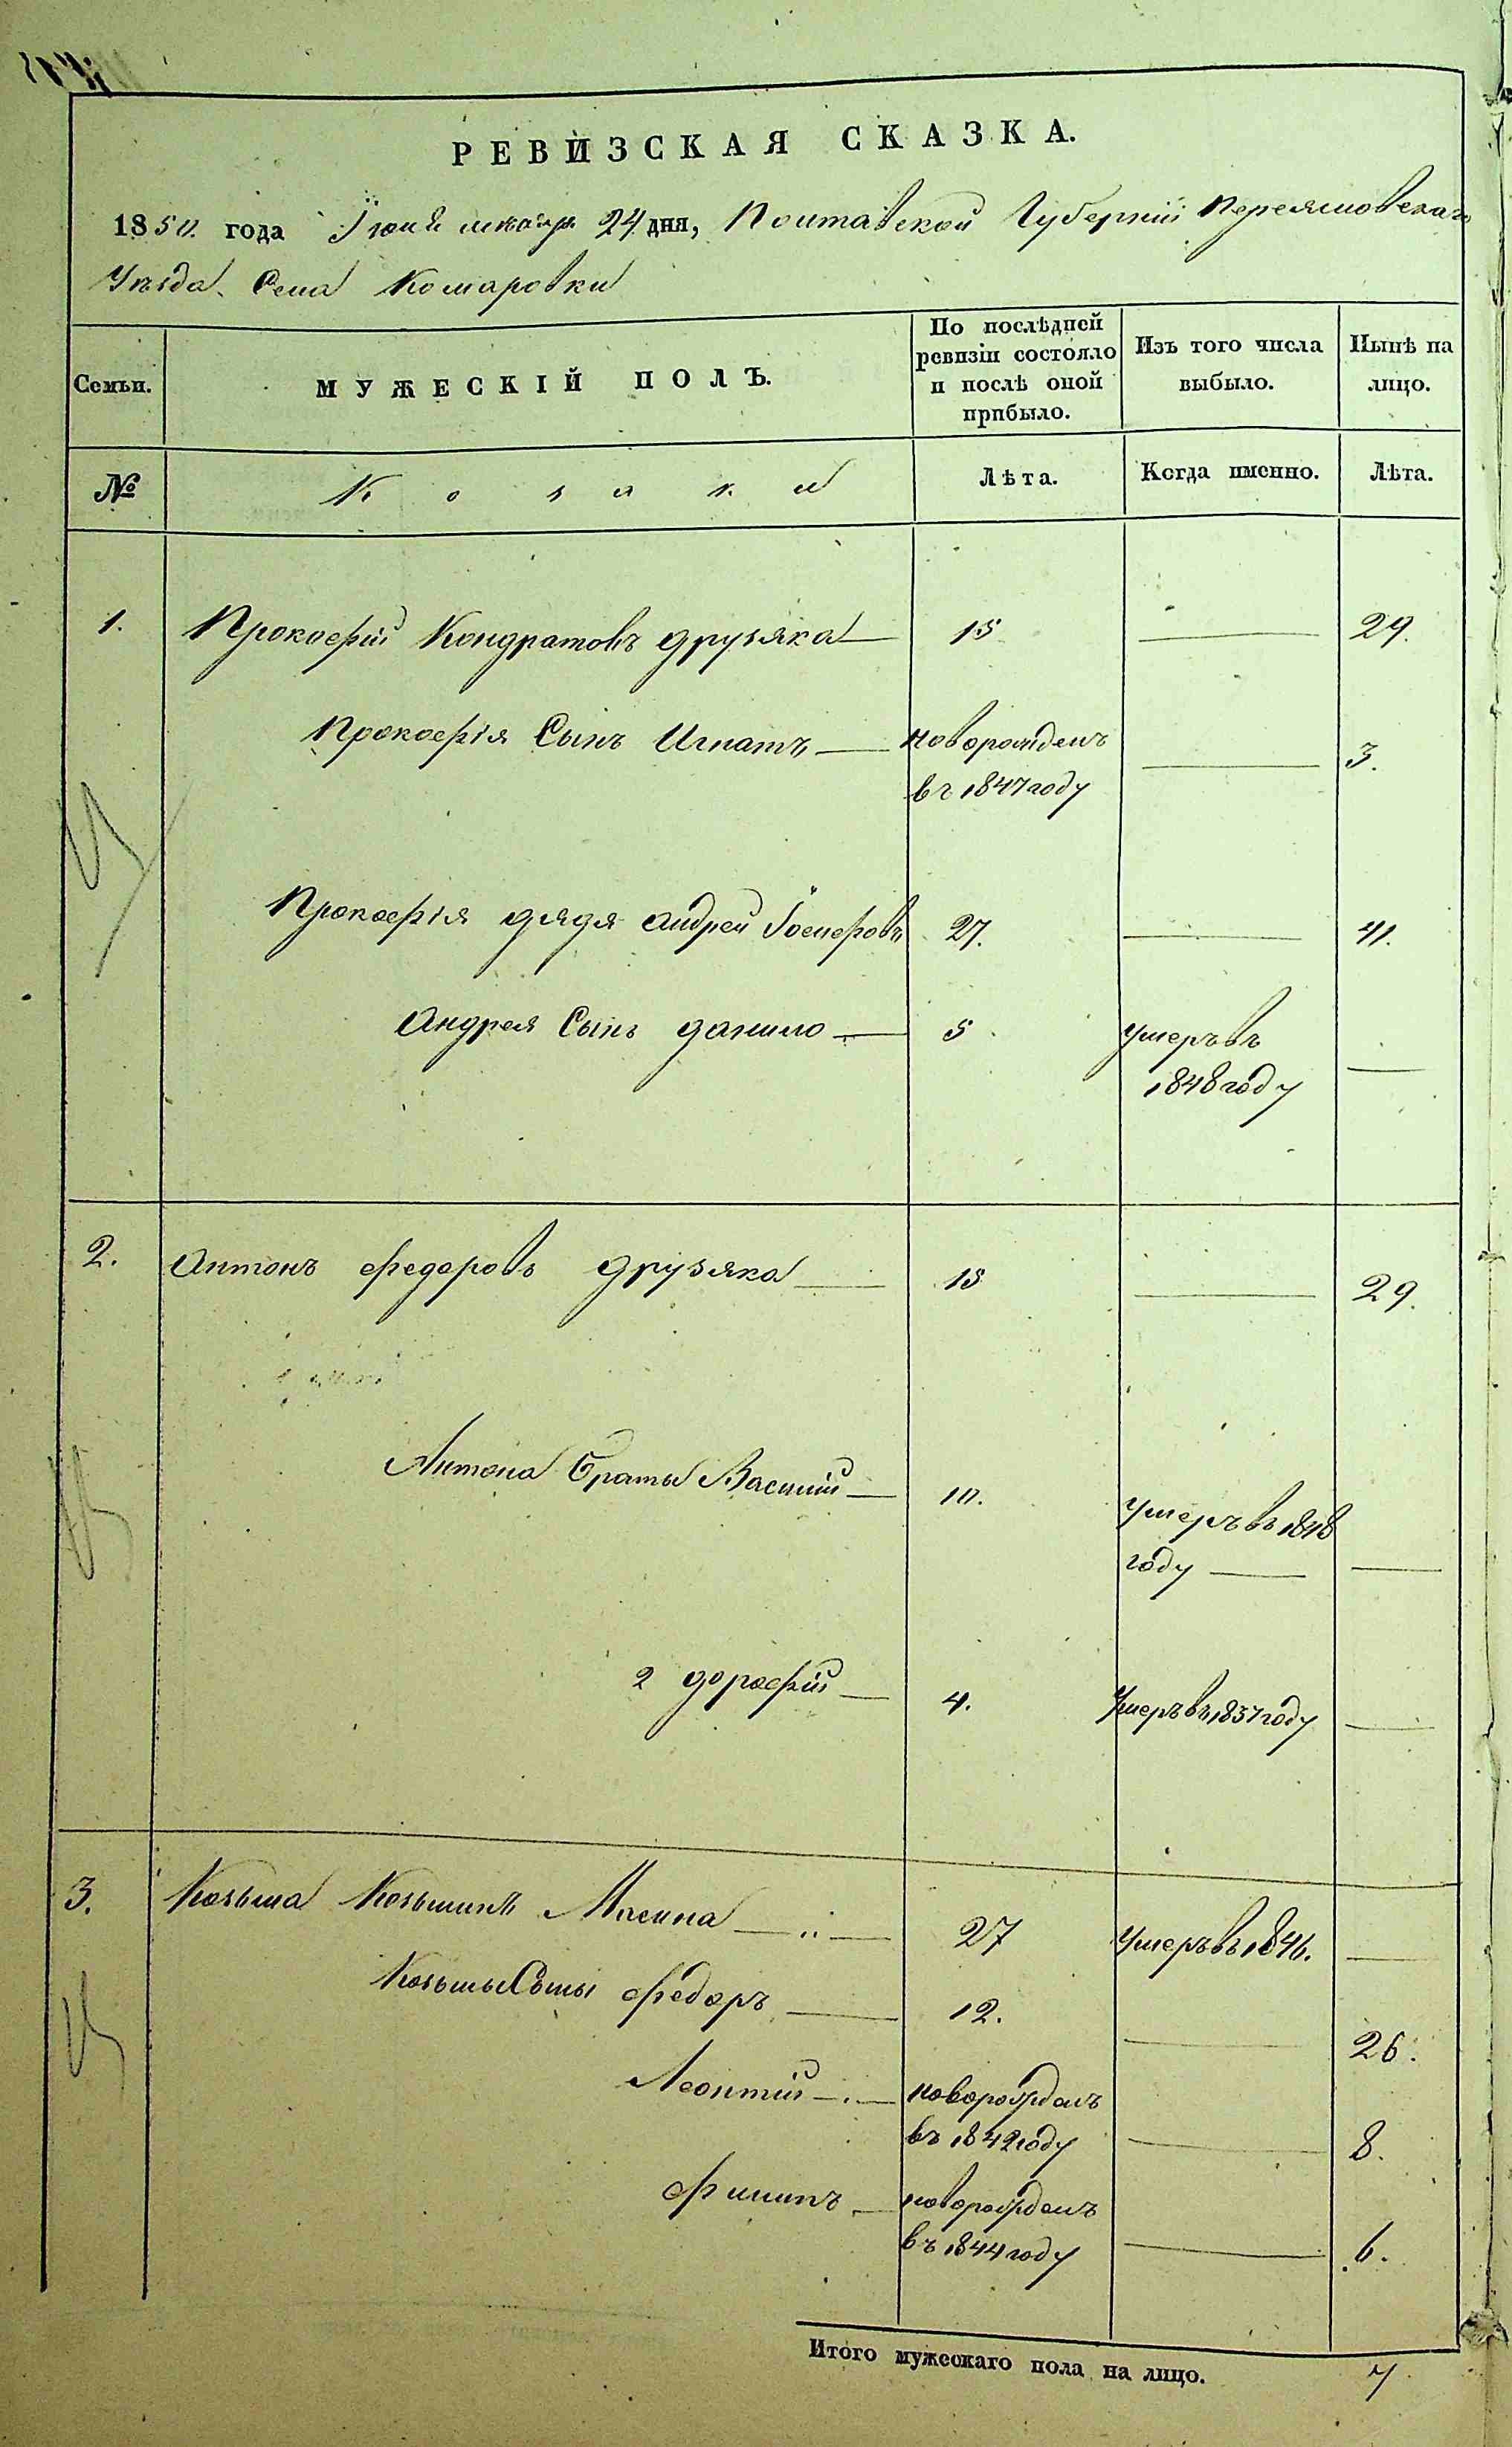 РЕВИЗСКАЯ СКАЗКА.
1850. года Іюня месяца 24 дня, Полтавской Губерніи Переяславскаго
Уѣзда. Села Комаровки
Семьи.
МУЖЕСКІЙ ПОЛЪ.
По послѣдней ревизіи состояло и послѣ оной прибыло.
Изъ того числа выбыло.
Нынѣ на лицо.
№
Козаки
Лѣта.
Когда именно.
Лѣта.
1. Прокофій Кондратовъ Друзяка 15 29.
Прокофія Сынъ Игнатъ новорожденъ 3.
въ 1847 году
Прокофія дядя Андрей 27. 41.
Андрея Сынъ данило 5 умеръ въ
1848 году
2. Антонъ Федоровъ Друзяка 15 29.
Антона Браты Василій 10. умеръ въ 1848
году
2 дорофій 4. Умеръ въ 1837 году
3. Козьма Козьминъ Масина 27 Умеръ въ 1846.
Козьмы Сыны Федоръ 12. 26.
Леонтій новорожденъ
въ 1842 году 8.
Филипъ новорожденъ
въ 1844 году 6.
Итого мужескаго пола на лицо. 7